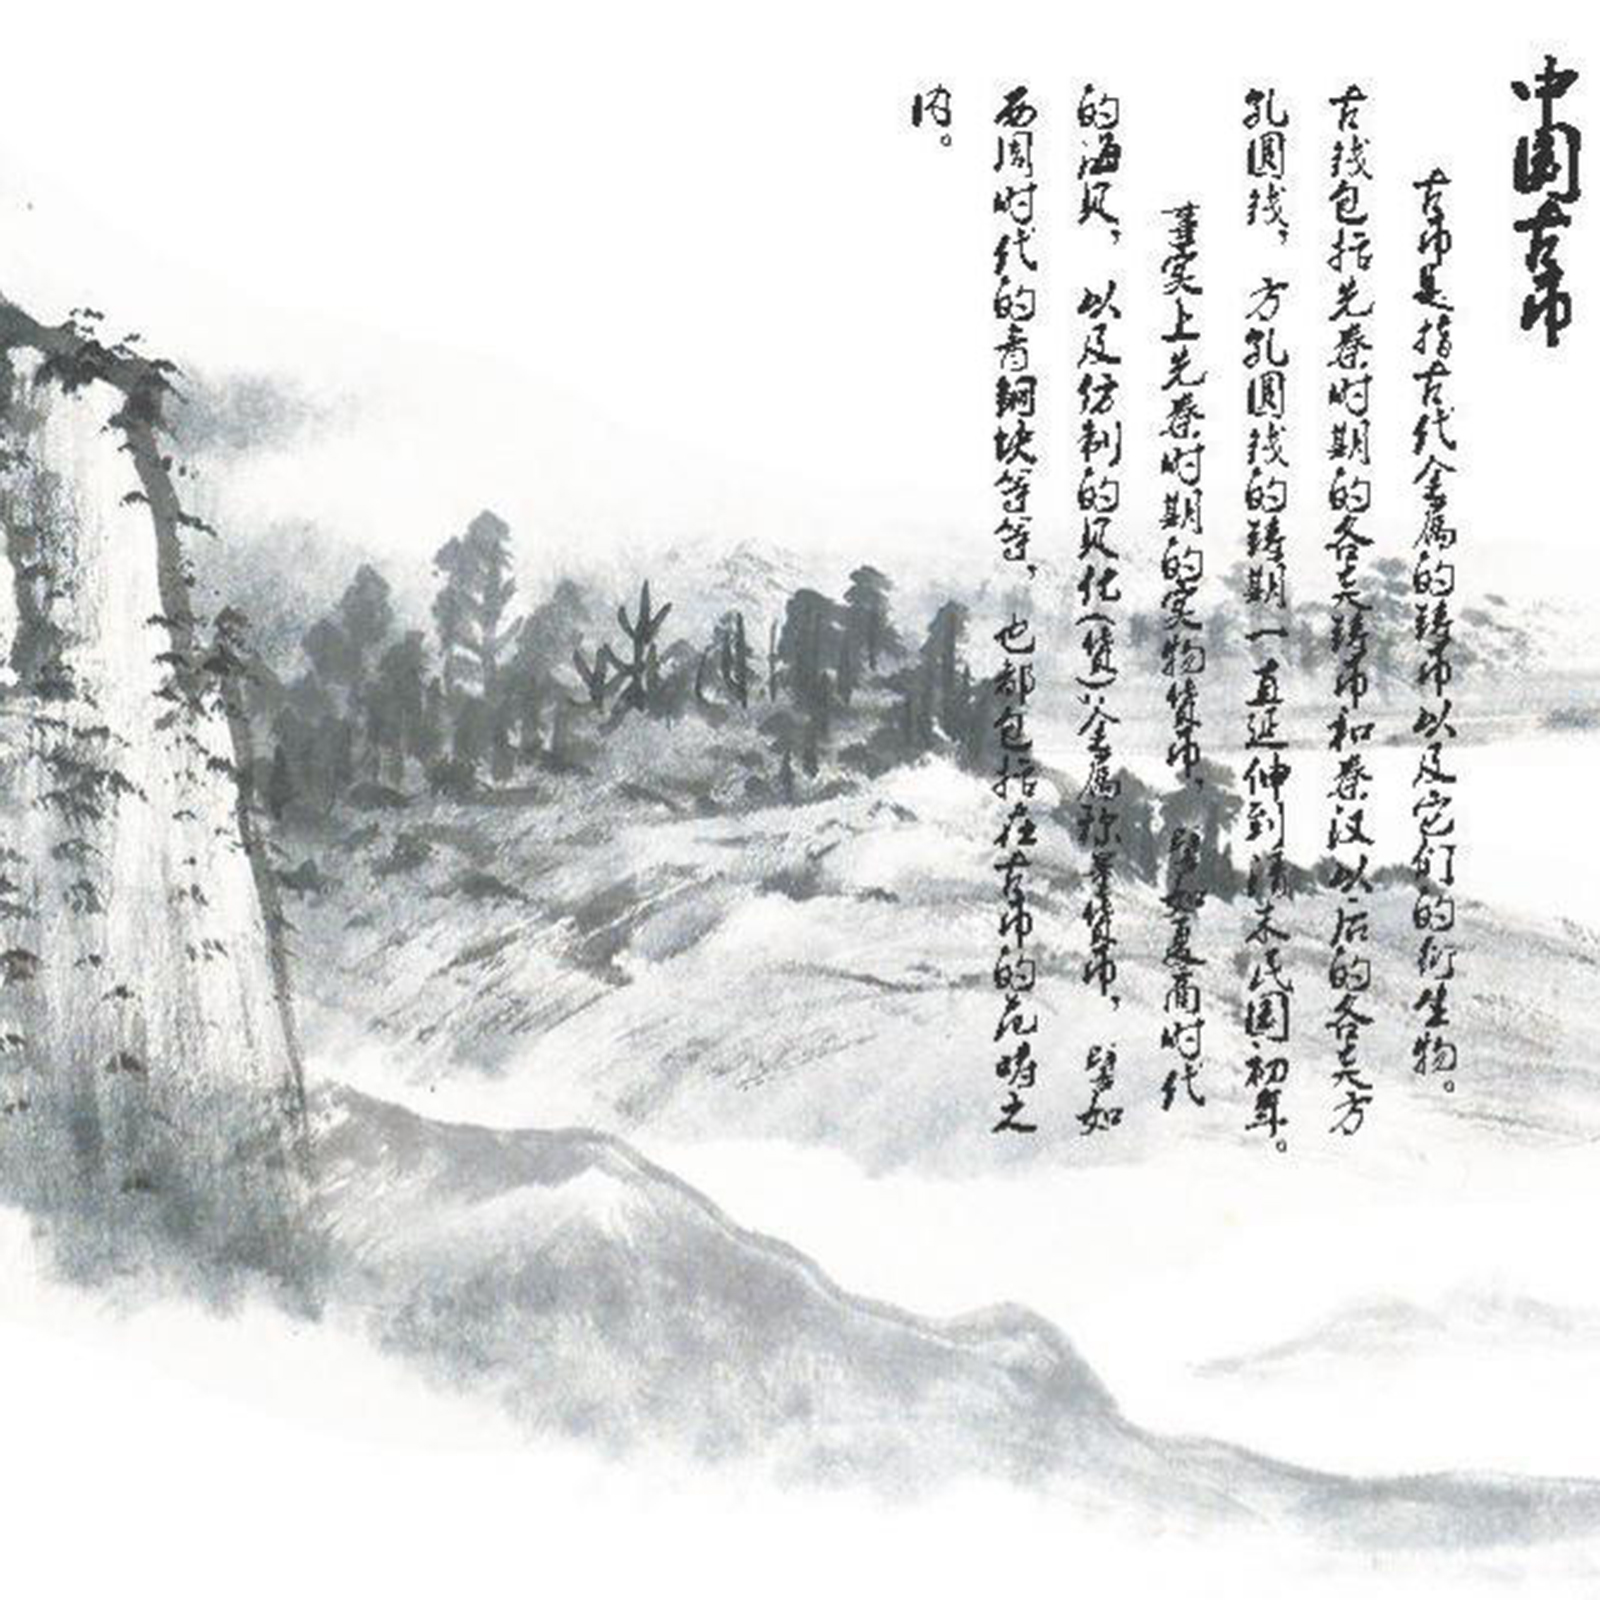 中国古币
古币是指古代金属的铸币以及它们的衍生物。
古钱包括先秦时期的各式铸币和秦汉以后的各式方
孔圆钱，方孔圆钱的铸期一直延伸到清末民国初年。
事实上先秦时期的实物货币，譬如夏商时代
的海贝，以及仿制的贝化(货)；金属称量货币，譬如
西周时代的青铜块等等，也都包括在古币的范畴之
内。